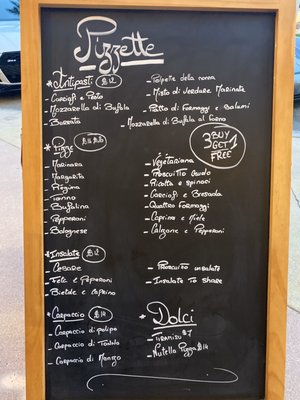 Pizzette
* Antipasti $12
- Carciofi e Pesto
- Mozzarella di Bufala
- Burrata
- Polpette della nonna
- Misto di Verdure Marinate
- Piatto di Formaggi e Salumi
- Mozzarella di Bufala al Forno
* Pizze
- Marinara
- Margarita
- Regina
- Tonno
- Bufalina
- Pepperoni
- Bolognese
- Vegetariana
- Prosciutto
- Ricotta e spinaci
- Carciofi e Bresaola
- Quattro Formaggi
- Caprino e Miele
- Calzone e Pepperoni
3 BUY
GET 1
FREE
* Insalate $12
- Cesare
- Feta e Peperoni
- Bietole e Caprino
- Prosciutto insalate
- Insalate To share
* Carpaccio $14
- Carpaccio di polipo
- Carpaccio di
- Carpaccio di Manzo
* Dolci
- Tiramisu $7
- Nutella Pizza $14